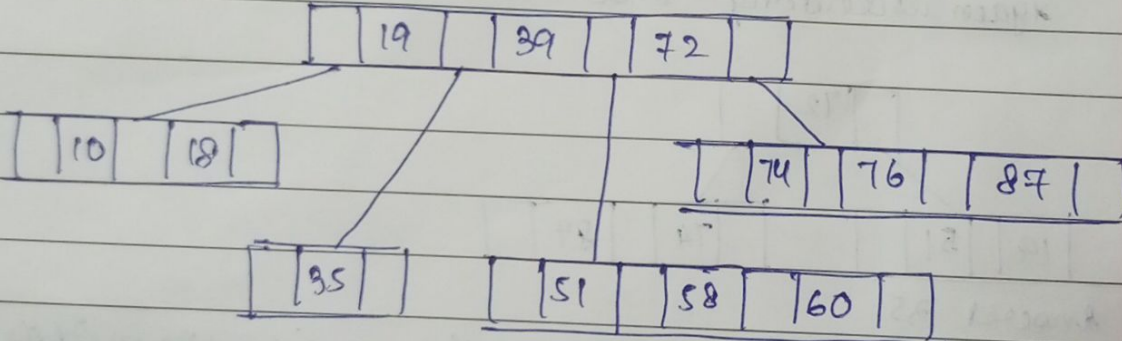 19 39 72
10 18
74 76 87
35
51 58 60